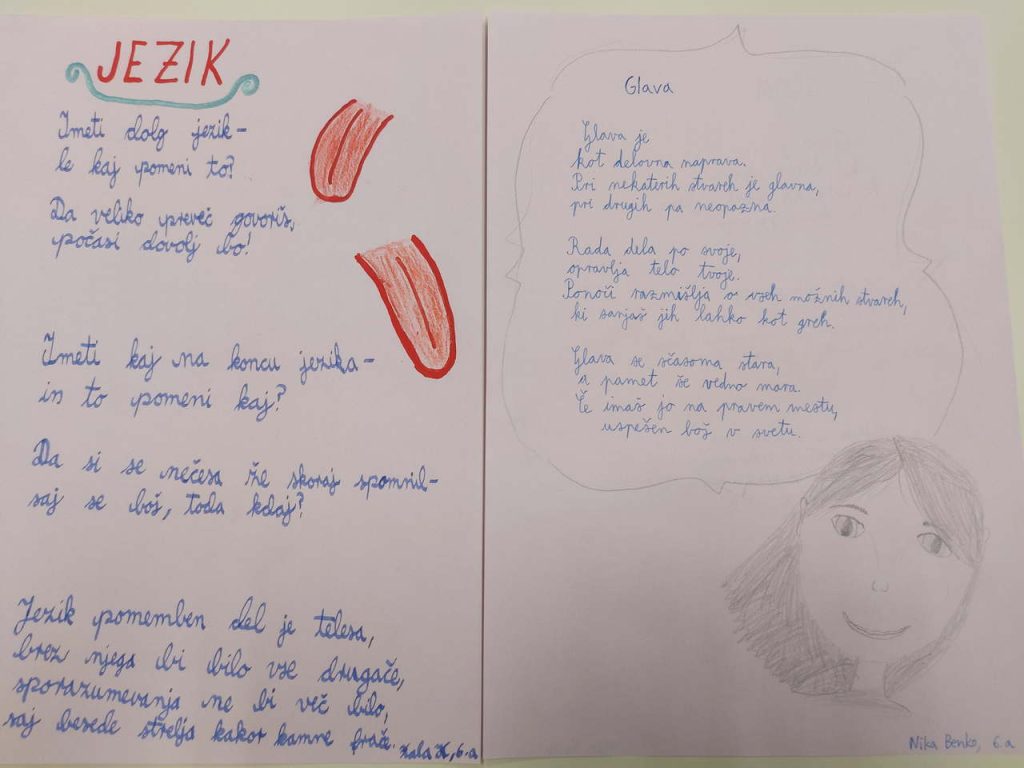 JEZIK
Imeti dolg jezik -
le kaj pomeni to?
Da veliko preveč govoriš,
počasi dovolj bo!
Imeti kaj na koncu jezika -
in to pomeni kaj?
Da si se nečesa že skoraj spomnil -
saj se boš, toda kdaj?
Jezik pomemben del je telesa,
brez njega bi bilo vse drugače,
sporazumevanja ne bi več bilo,
saj besede strelja kakor kamne frače.
Zala K, 6.a
Glava
Glava je,
kot delovna naprava.
Pri nekaterih stvareh je glavna,
pri drugih pa neopazna.
Rada dela po svoje,
opravlja telo tvoje.
Ponoči razmišlja o vseh možnih stvareh,
ki sanjaš jih lahko kot greh.
Glava se sčasoma stara,
a pamet še vedno mara.
Če imaš jo na pravem mestu,
uspešen boš v svetu.
Nika Benko, 6.a